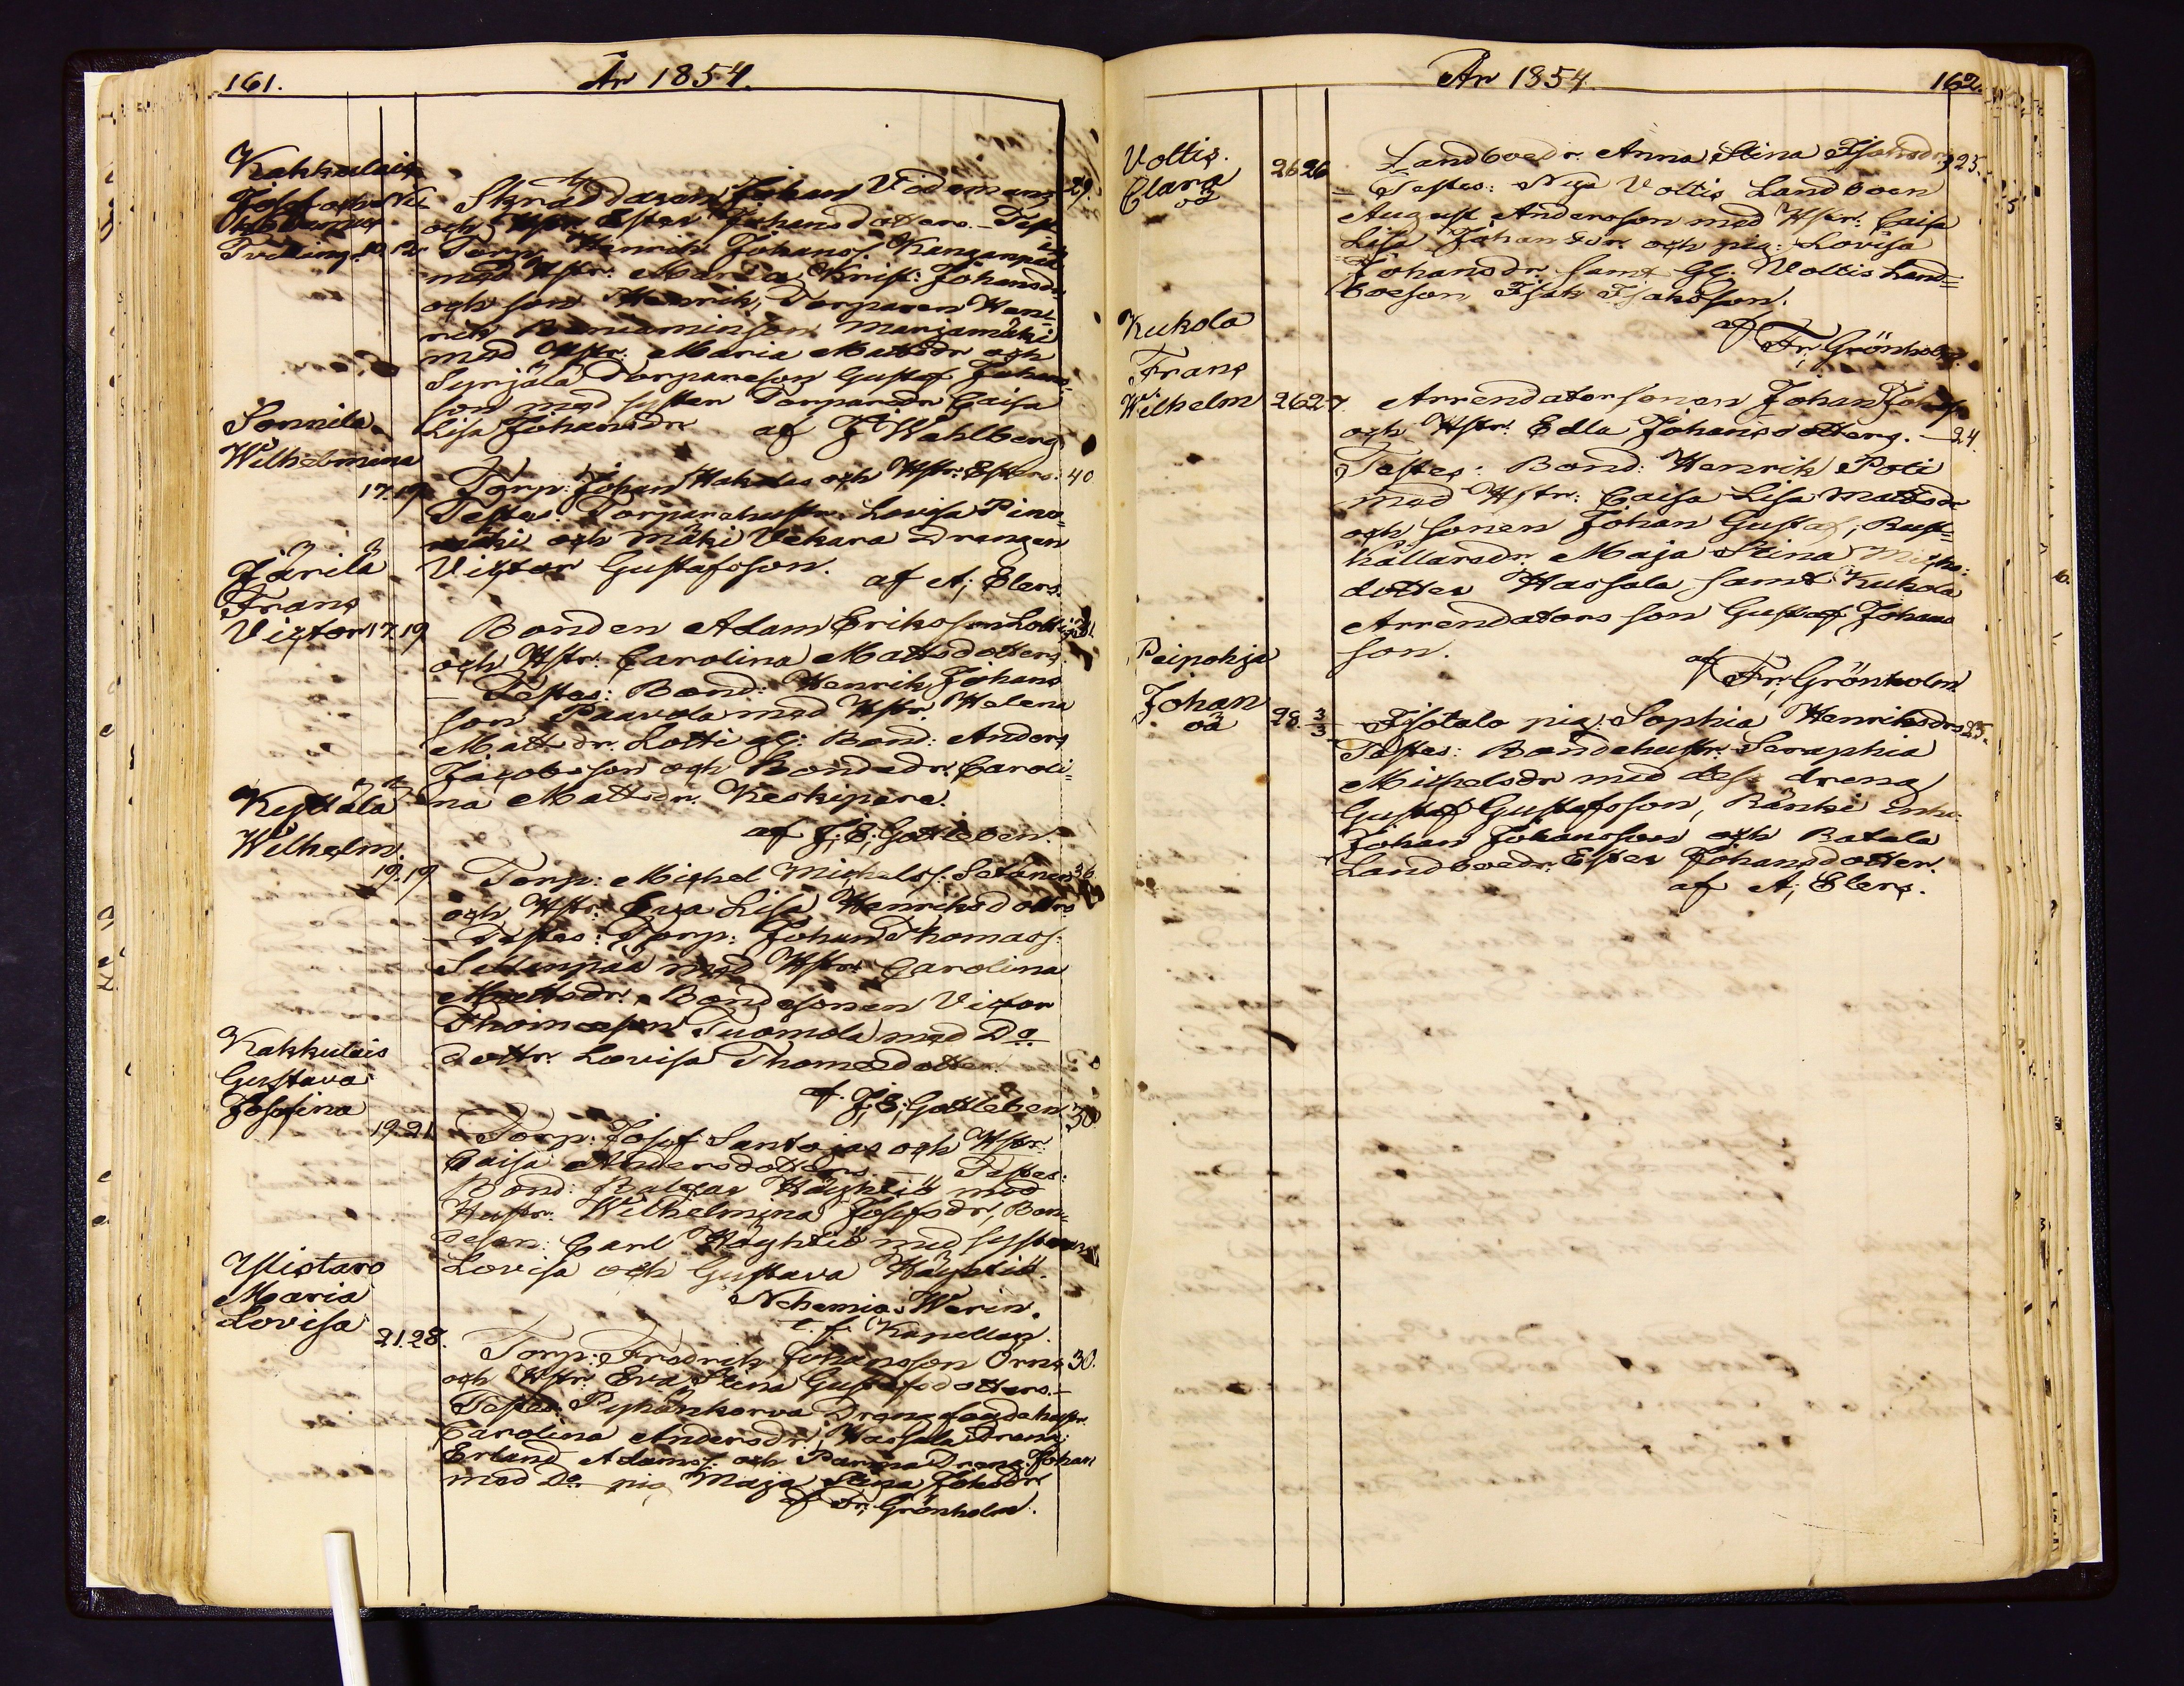 161.
År 1854.
Kakkulais
Josef och
Tvilling. 10. 12
Skräddaren Johan Widemans 29.
och Hstr. Ester Johansdotters. - Test
Torp. Henrik Johanss. Kanganpää
med Hstr. Maria Krist: Johansdr
och son Henrik, Torparen Hen=
rik Benjaminson Manzamäki
med Hstr. Maria Mattsdr och
Syrjälä Torpareson Gustaf Johans
son med syster Torparedr Caisa
Lisa Johansdr af J. Wahlberg
Sonnila
Wilhelmina
17.19
Torp: Johan Hakulas och Hstr. Esters. 40
Testes: Torparehustr. Lovisa Pino=
mäki och Mäki Uekara drängen
Victor Gustafsson. af A; Elers.
Järilä
Frans
Victor 17.19
Bonden Adam Erikssons Lotti 31.
och Hstr: Carolina Mattsdotters
- Testes: Bond: Henrik Johans
son Paavola med Hstr. Helena
Mattsdr. Lotti gl: Bond: Anders
Jacobsson och Bondedr. Caroli=
na Mattsdr. Keskipere.
af J; E; Gottleben.
Kyttälä
Wilhelm.
19.19
Torp: Michel Michelss. Setänen 36
och Hstr. Eva Lisa Henriksdotters
- Testes: Torp: Johan Thomass:
Setänpää med Hstr: Carolina
Mattsdr., Bondesonen Victor
Thomasson Tuomola med Do
dottr. Lovisa Thomasdotter.
af J; E; Gottleben.
Kakkulais
Gustava
Josefina
19.21.
Torp: Josef Santojas och Hstr: 30
Caisa Andersdotters. — Testes:
Bond: Baltzar Häyhtiö med
Hustr. Wilhelmina Josefsdr, Bon=
deson: Carl Häyhtiö med systrarna
Lovisa och Gustava Häyhtiö.
Nehemias Werin.
t. f. Kapellan.
Maria
Lovisa
21.28.
Torp: Fredrik Johansson Örns 30.
och Hstr. Eva Stina Gustafsdotters.-
Testes: Pyhänkorva Dreng Landehustr.
Carolina Andersdr; Hassala Dreng:
Erland Adamss. och Parma Dreng: Johan
med Do pig Maja Stina Johsdr.
af Fr; Grönholm.
År 1854.
162.
Voltis.
Clara
oä
26 26
Landboedr. Anna Stina Isaksdrs 25.
- Testes: Nya Voltis Landboen
August Andersson med Hstr: Caisa
Lisa Johansdr. och pig: Lovisa
Johansdr. samt Gl. Voltis Land=
boeson Isak Isaksson.
af Fr; Grönholm.
Kukola
Frans
Wilhelm 26 27.
Arrendatorsonen Johan Johss
och Hstr: Edla Johansdotters. - 24.
Testes: Bond: Henrik Poti
med Hstr: Caisa Lisa Mattsdr
och sonen Johan Gustaf; Rust=
hållarsdr. Maja Stina Michs:
dotter Hassala, samt Kukola
Arrendators son Gustaf Johans
son.
af Fr; Grönholm.
Peipohja
Johan
oä
28. 3/3
Isotalo pig: Sophia Henriksdrs 25.
Testes: Bondehustr. Seraphia
Michelsdr med dess dreng
Gustaf Gustafsson, Ränki Inh.
Johan Johansson och Ratala
Landboedr: Ester Johansdotter.
af A; Elers.